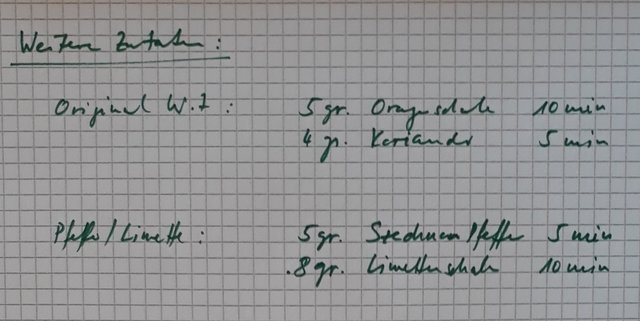 Weitere Zutaten :
Original W.I : 5 gr. Orangenschale 10 min
4 gr. Koriander 5 min
Pfeffer/Limette : 5 gr. Pfeffer 5 min
.8 gr. Limettenschale 10 min